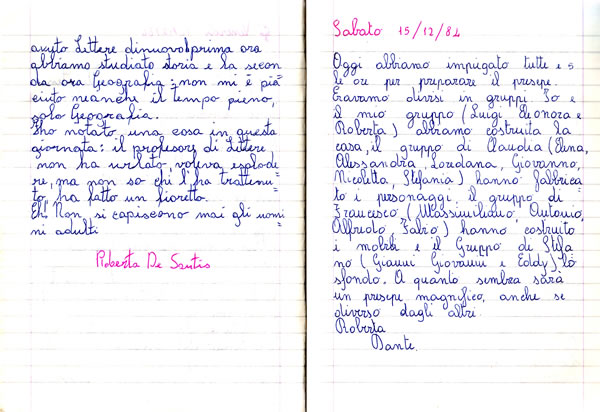 avuto Lettere dinuovo! prima ora
abbiamo studiato storia e la secon
da ora Geografia: non mi è pia
ciuto neanche il tempo pieno,
solo Geografia.
Ho notato, una cosa in questa
giornata: il professore di Lettere
non ha urlato, voleva esplode
re, ma non so chi l'ha trattenu
to, ha fatto un fioretto.
Eh! Non si capiscono mai gli uomi
ni adulti
Roberta De Santis
Sabato 15/12/84
Oggi abbiamo impiegato tutte e 5
le ore per preparare il presepe.
Eravamo divisi in gruppi. Io e
il mio gruppo (Luigi Eleonora e
Roberta) abbiamo costruita la
casa, il gruppo di Claudia (Elena,
Alessandra, Loredana, Giovanna,
Nicoletta, Stefania) hanno fabbrica
to i personaggi. il gruppo di
Francesco, (Massimiliano, Antonio,
Alfredo, Fabio) hanno costruito
i mobili e il Gruppo di Stefa
no (Gianni Giovanni e Eddy) lo
sfondo. A quanto sembra sarà
un presepe magnifico, anche se
diverso dagli altri.
Roberta
Dante.